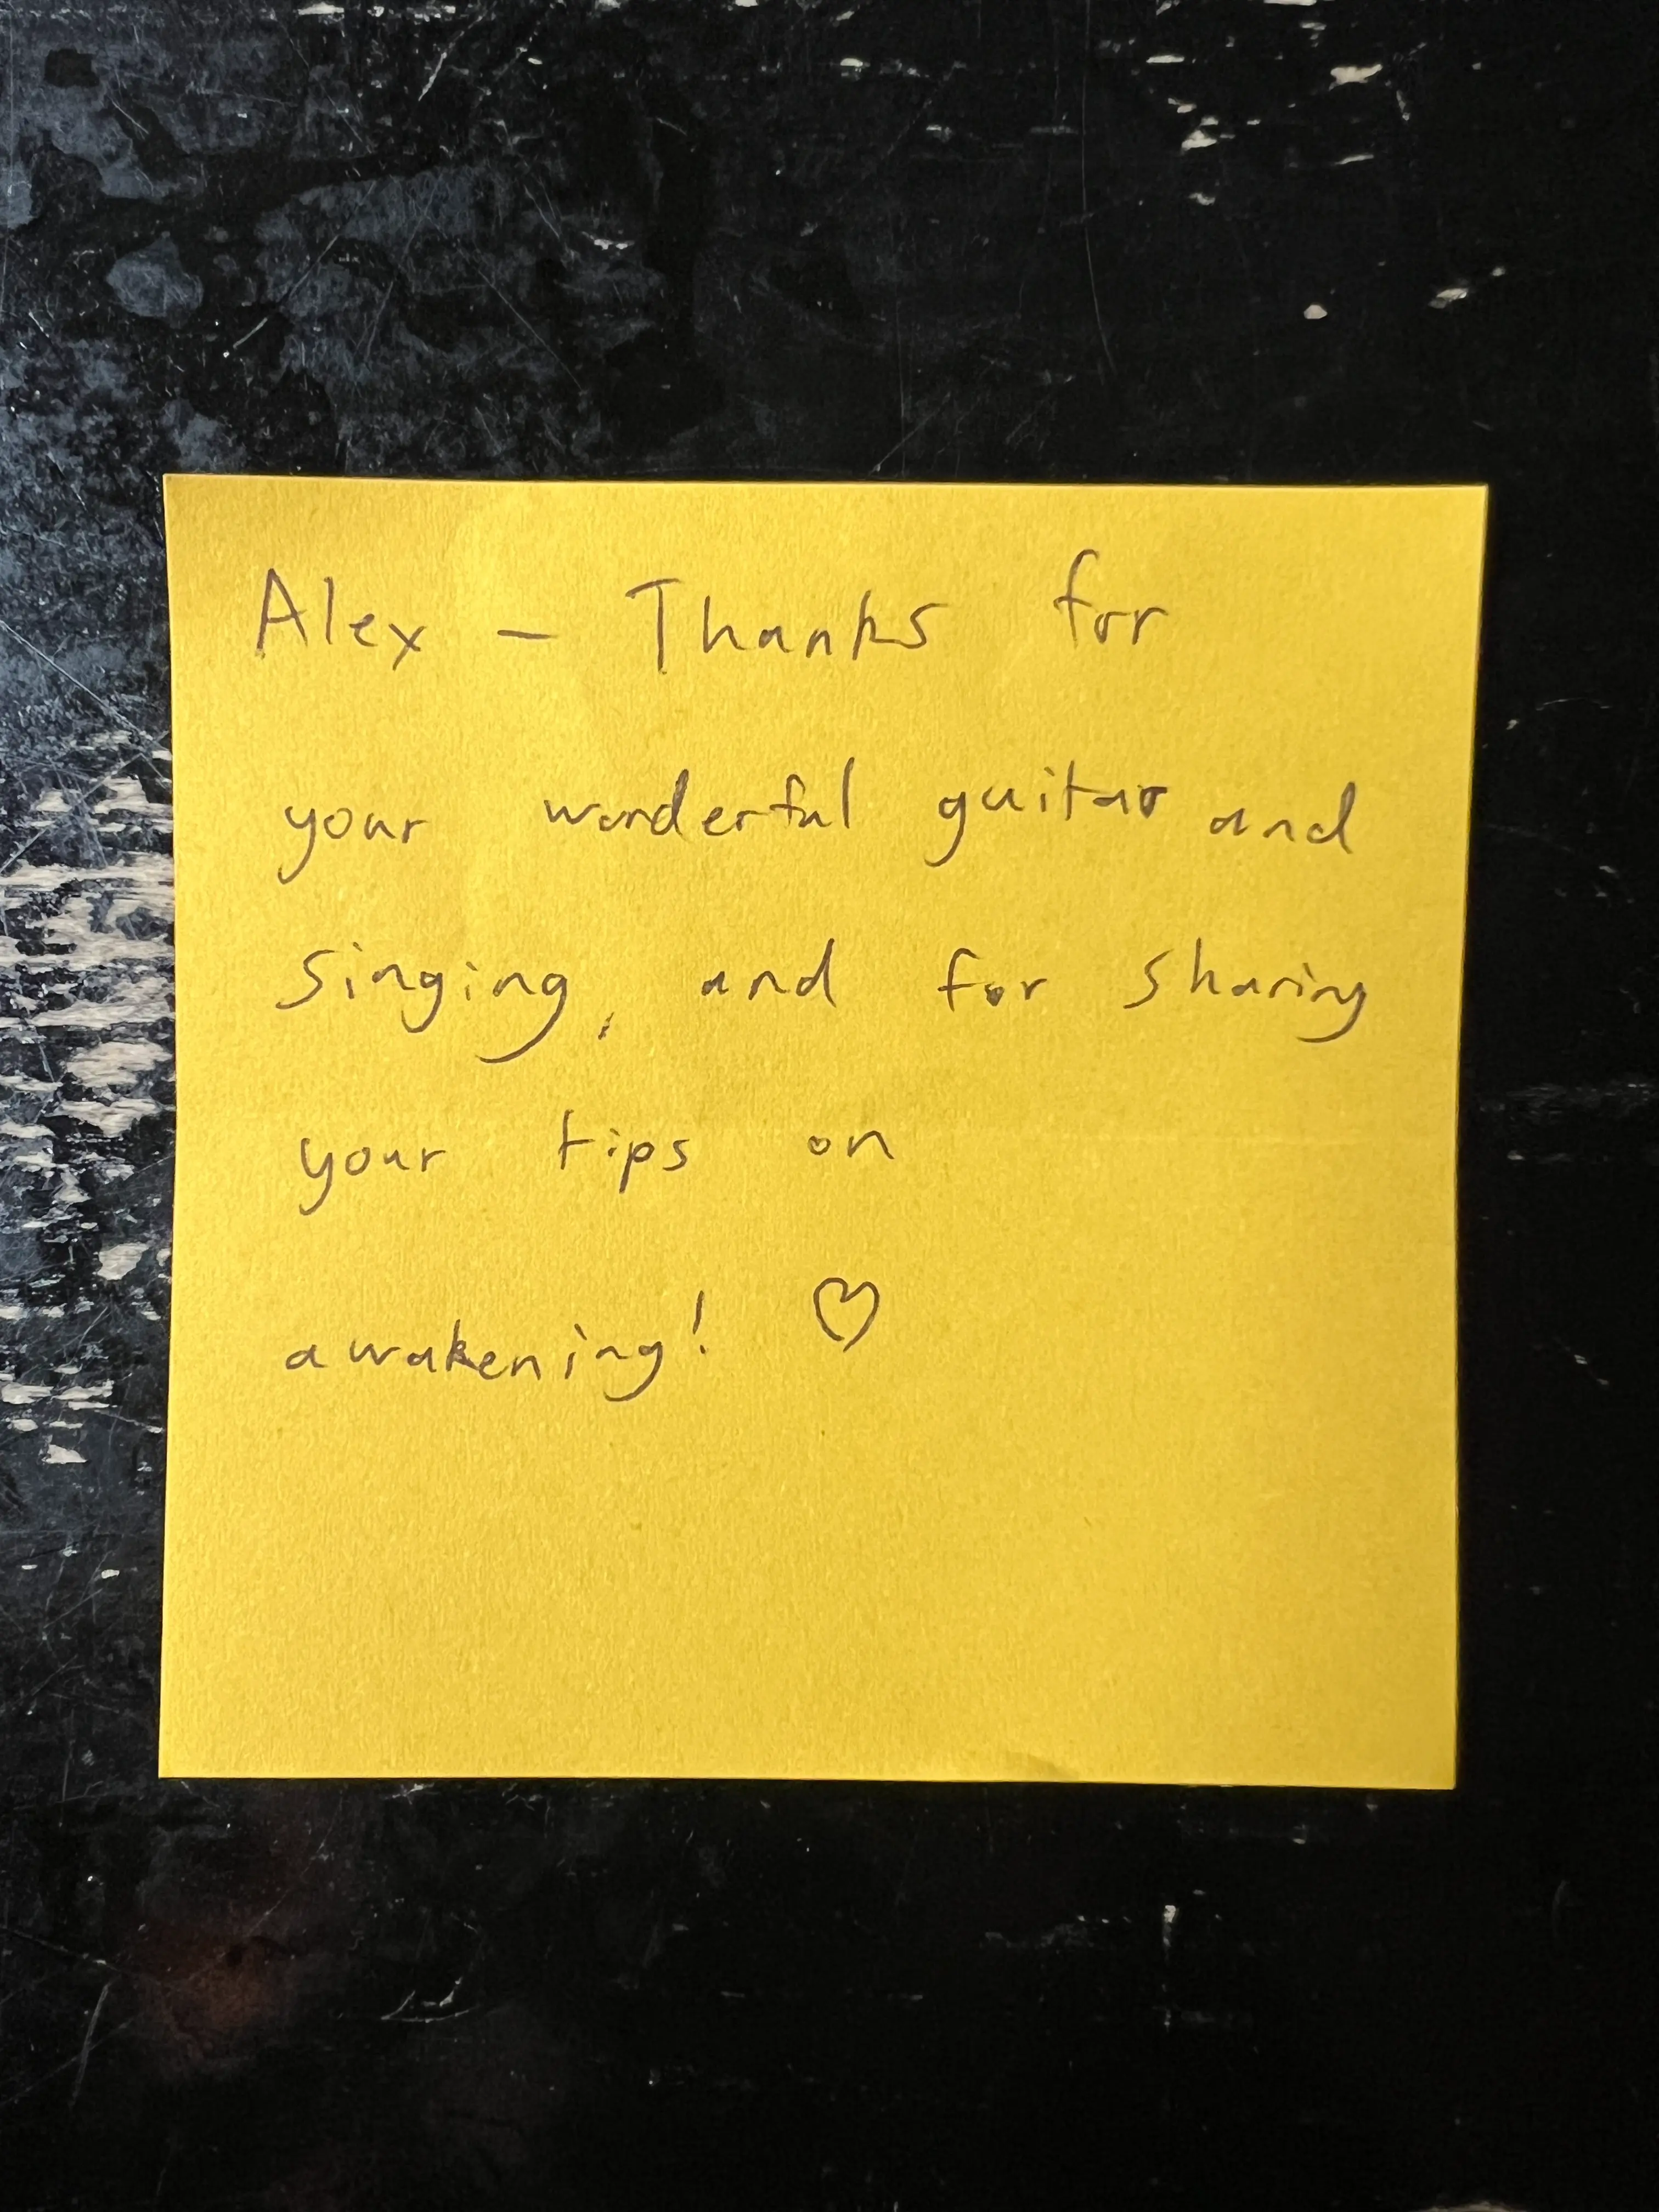 Alex - Thanks for
your wonderful guitar and
singing, and for sharing
your tips on
awakening! ♡